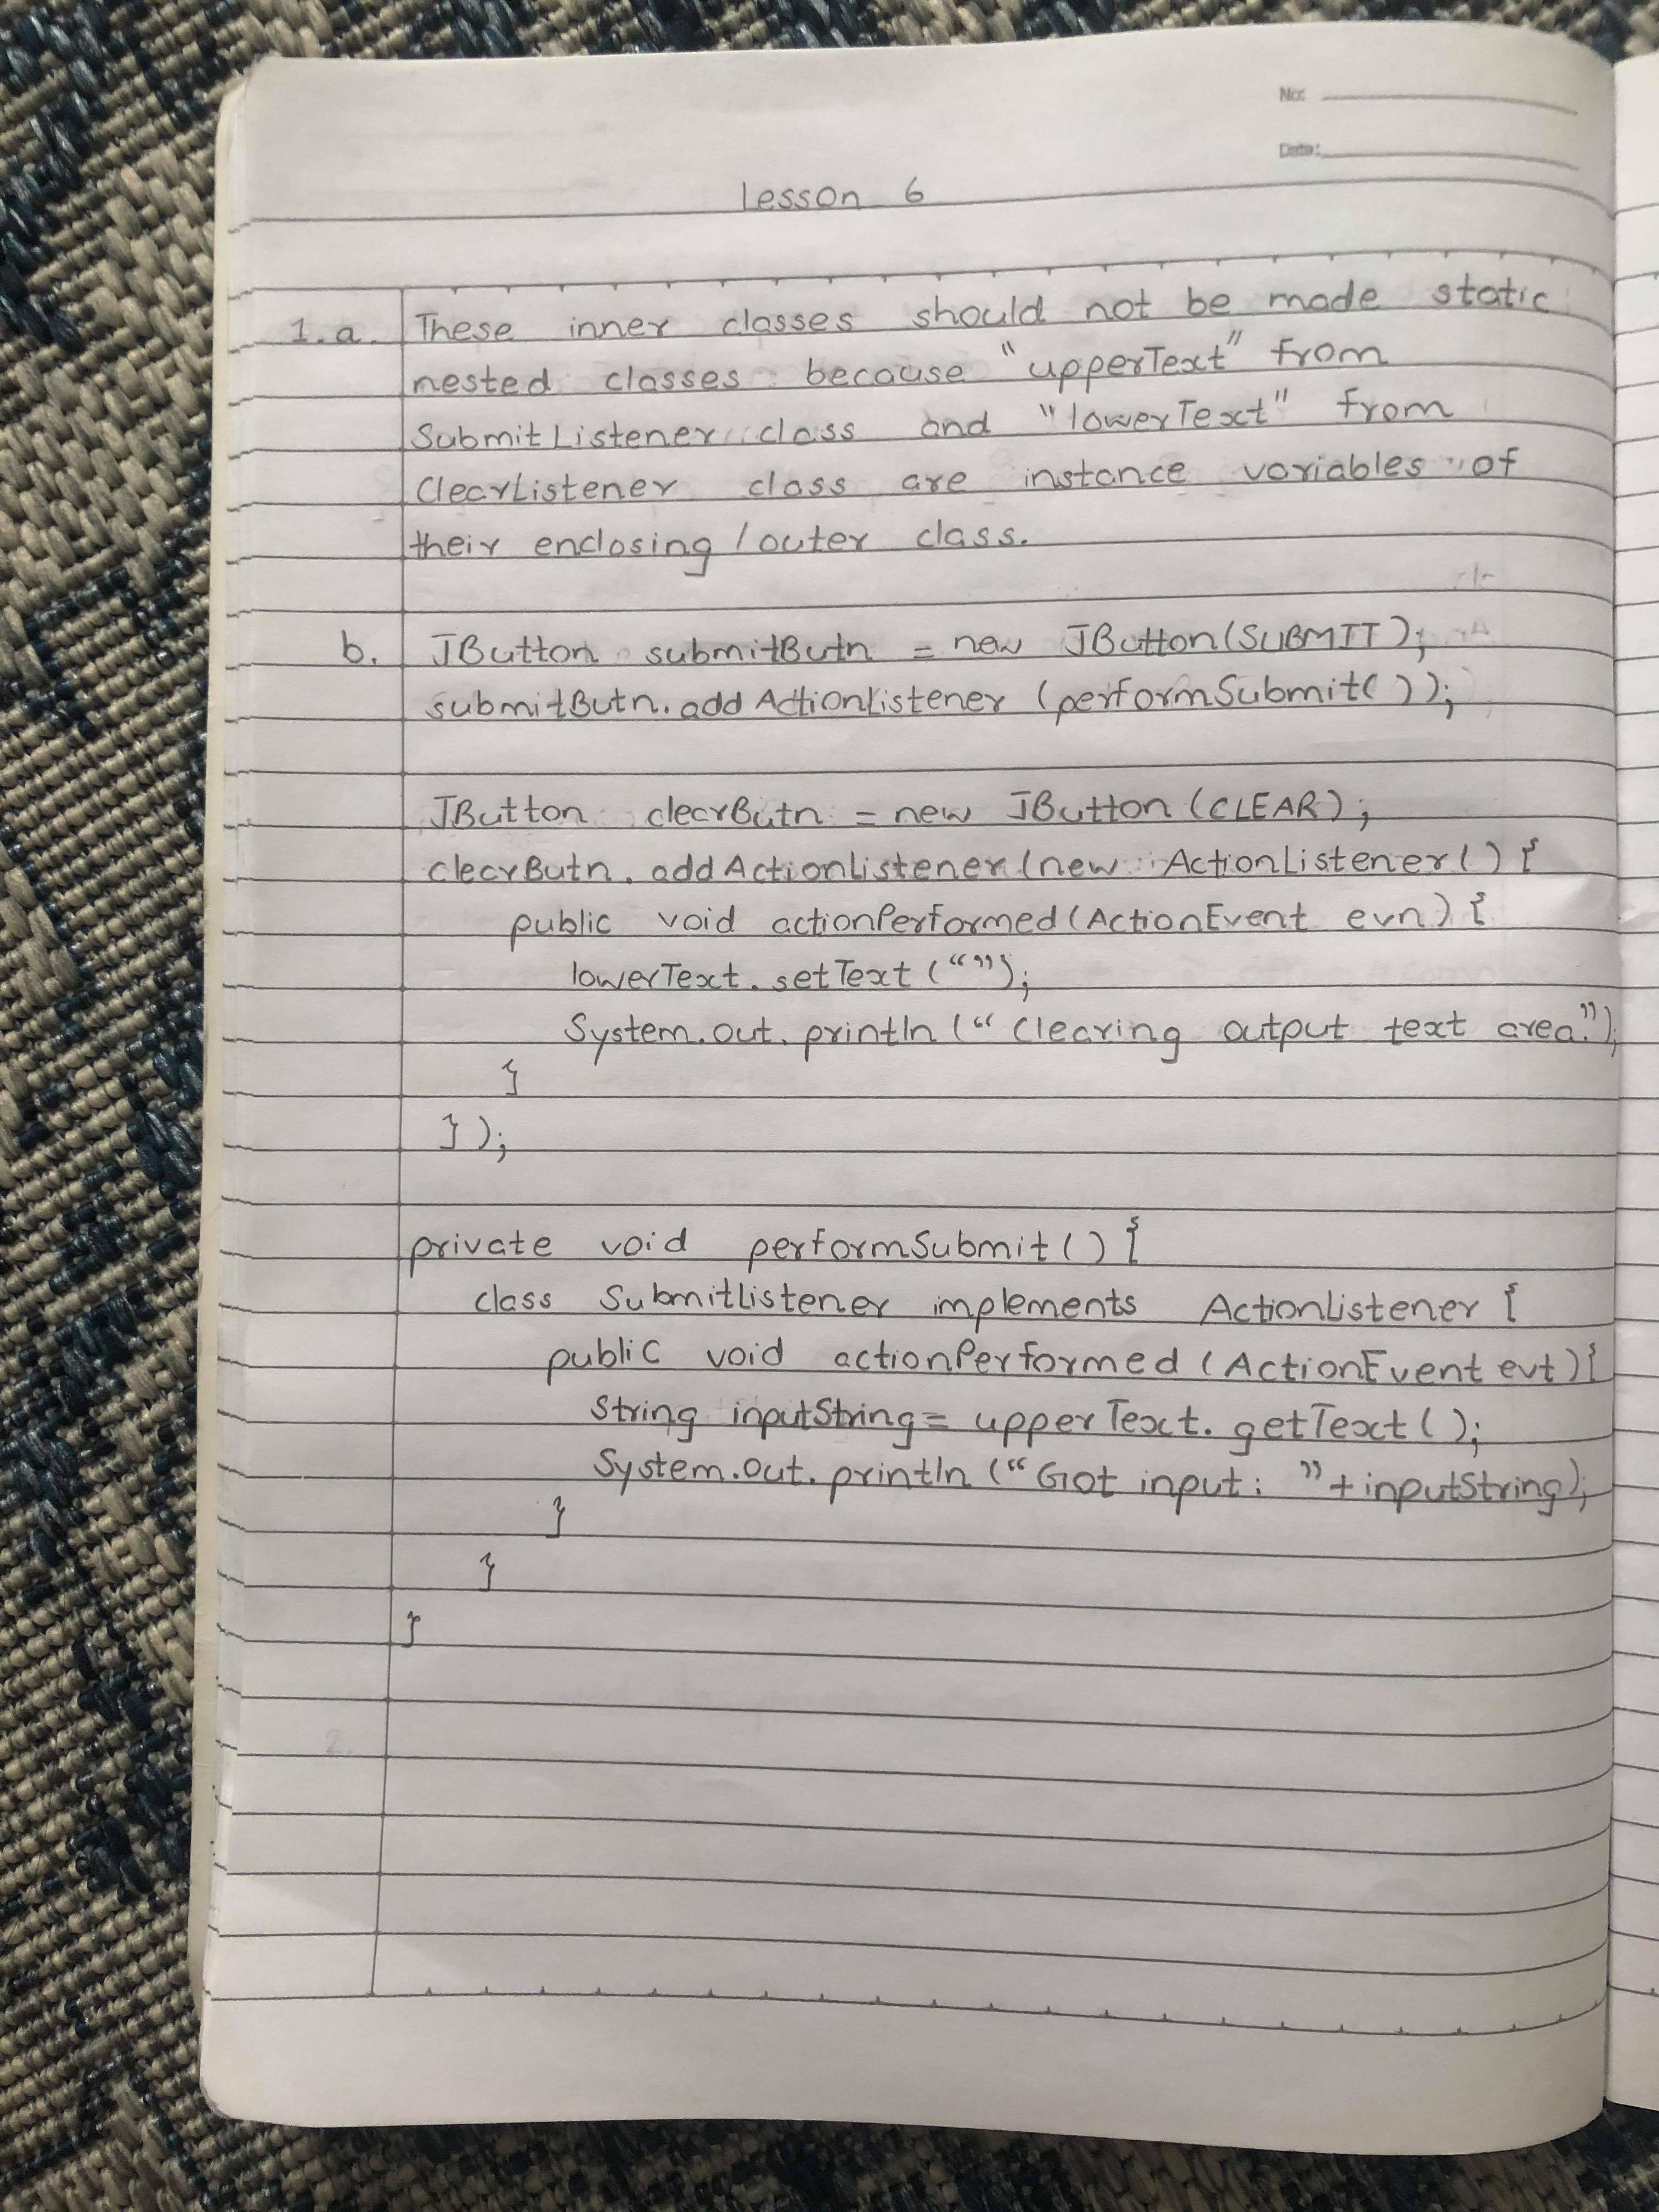 No:
Date:
lesson 6
1. a. These inner classes should not be made static
nested classes because "upperText" from
SubmitListener class and "lowerText" from
ClearListener class are instance variables of
their enclosing / outer class.
b. JButton submitButn = new JButton(SUBMIT);
submitButn.addActionListener (performSubmit());
JButton clearButn = new JButton (CLEAR);
clearButn.addActionListener(new ActionListener() {
public void actionPerformed(ActionEvent evn) {
lowerText.setText ("");
System.out.println ("Clearing output text area.");
}
});
private void performSubmit() {
class SubmitListener implements ActionListener {
public void actionPerformed (ActionEvent evt){
String inputString = upperText.getText();
System.out.println ("Got input: "+inputString);
}
}
}
2.